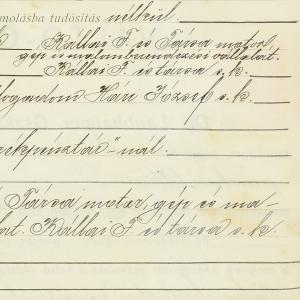 molásba tudósítás nélkül.
Kállai T. és Társa motor,
gép és malomberendezési vállalat.
Kállai T. és társa s. k.
fogadom Hári József s. k.
ékpénztár"-nál.
Társa motor, gép és ma-
at. Kállai T. és társa s. k.